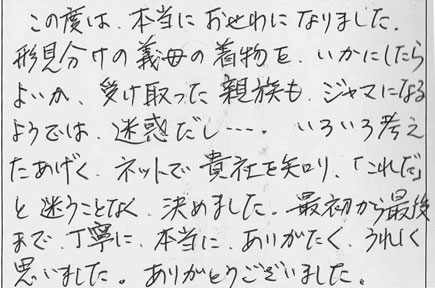 この度は、本当におせわになりました。
形見分けの義母の着物を、いかにしたら
よいか、受け取った親族も、ジャマになる
ようでは、迷惑だし‥‥、いろいろ考え
たあげく、ネットで貴社を知り、「これだ」
と迷うことなく、決めました。最初から最後
まで、丁寧に、本当に、ありがたく、うれしく
思いました。ありがとうございました。